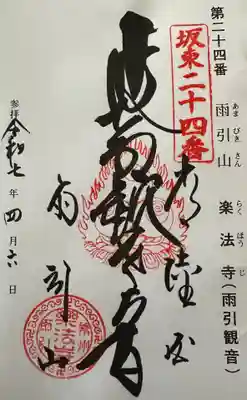 第二十四番
雨引山 楽法寺(雨引観音)
あまびきさん らくほうじ
坂東二十四番
常陸国
延命観世音
雨引山
参拝 令和七年四月六日